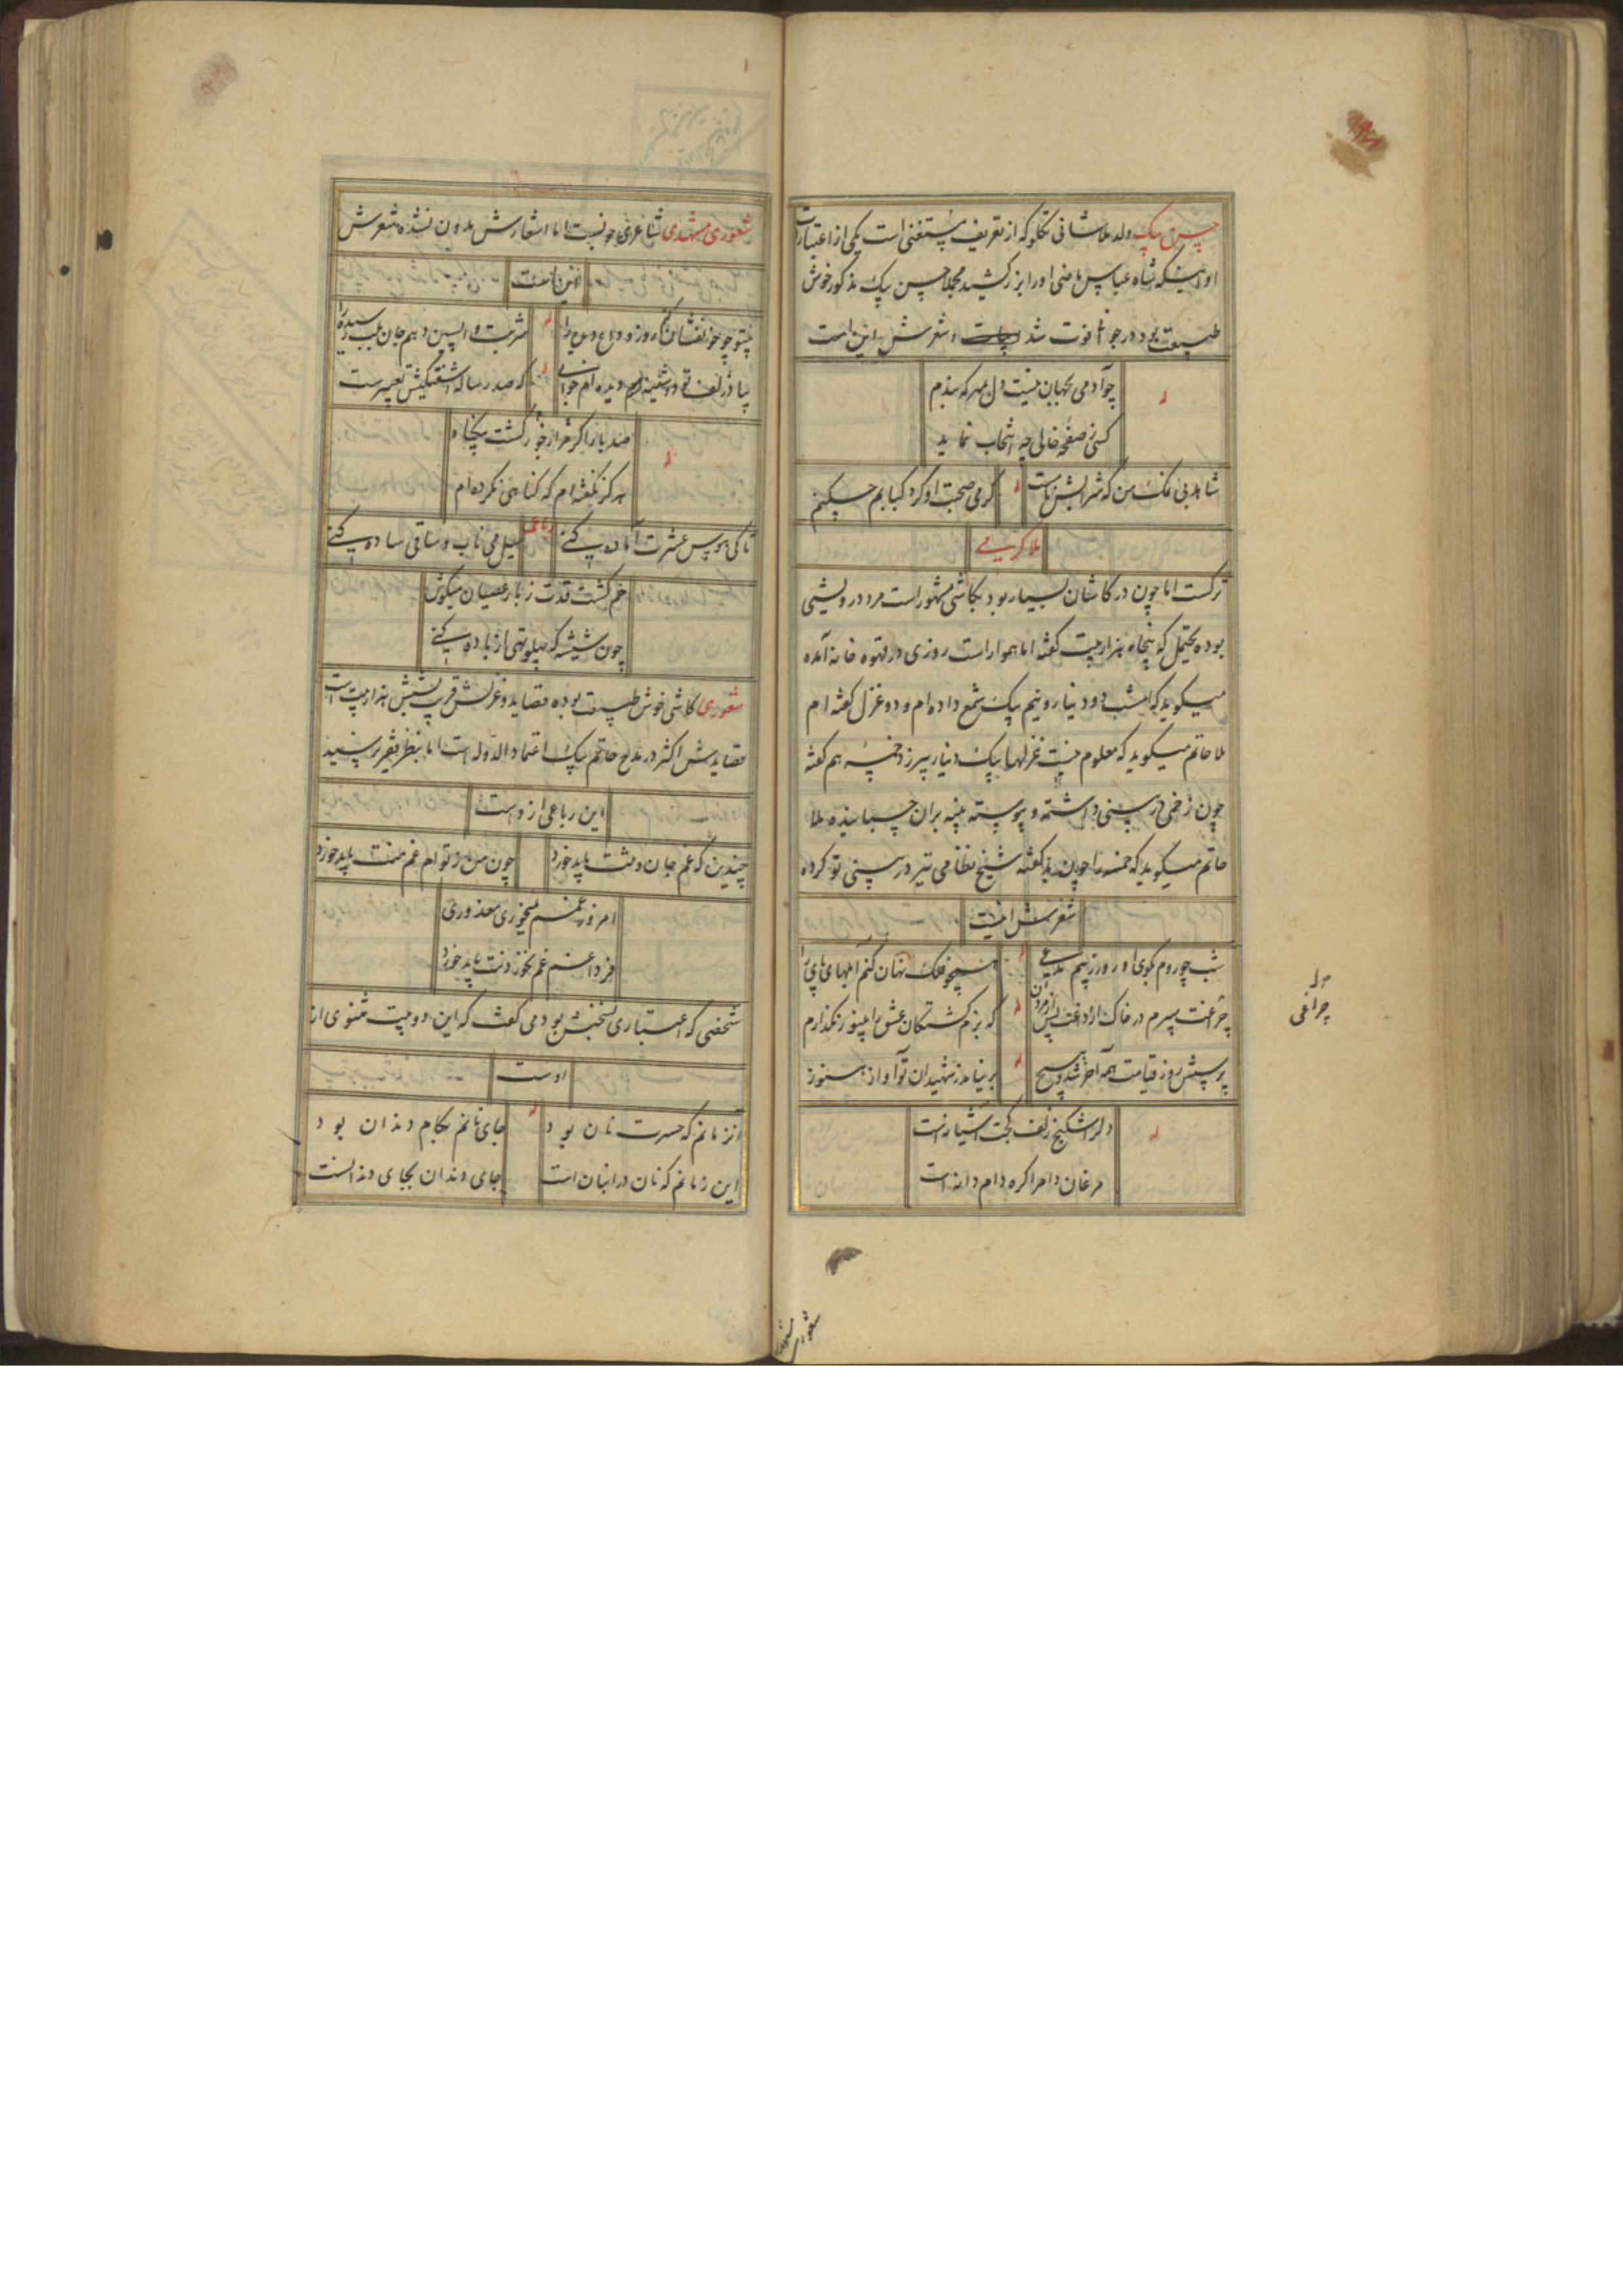 حسن بیک ولد ملا شانی تکلو که از تعریف مستغنی است یکی از اعتبارات
او اینکه شاه عباس ماضی او را بزر کشید مجملا حسن بیک مذکور خوش
طبیعت بود در جوانی فوت شد و شعرش این است
چو آدمی بجهان نیست دل بمهر که بندم
کسی ز صفحه خالی چه انتخاب نماید
شاهد بی نمک من که شرابش ناب است
گرمی صحبت او کرد کبابم چکنم
ملا کریمی
ترکست اما چون در کاشان بسیار بود بکاشی مشهور است مرد درویشی
بوده یحتمل که پنجاه هزار بیت گفته اما هموار است روزی در قهوه خانه آمده
میگوید که امشب دو دینار و نیم بیک شمع داده ام و دو غزل گفته ام
ملا حاتم میگوید که معلوم نیست غزلها بیک دینار بیرزد خمسه هم گفته
چون زخمی در بینی داشته و پیوسته پنبه بران چسبانیده ملا
حاتم میگوید که خمسه را چون بد گفته شیخ نظامی تیر در بینی تو کرده
شعرش اینست
شب چو روم بکوی او روز ز بیم مدعی
همچو فلک نهان کنم آبلهای پای را
چراغت میبرم در خاک از داغت پس از مردن
که بزم کشتگان عشق را بینور نگذارم
پرسش روز قیامت همه آخر شد و هیچ
بر نیامد ز شهیدان تو آواز هنوز
دلرا شکنج زلف کجت آشیانه است
مرغان دام را گره دام دانه است
چراغی
شعوری مشهدی شاعری خوبست اما اشعارش مدون نشده شعرش
این است
شربت واپسین دهم جان بلب رسیده را
که صد رساله آشفتگیش تعبیرست
صد بار اگر مرا ز خود کشت بیگناه
هرگز نگفته ام که گناهی نکرده ام
تا کی هوس عشرت آماده کنی
رباعی
میل می ناب و ساقی ساده کنی
خم گشت قدت ز بار عصیان میکوش
چون شیشه که پهلو تهی از باده کنی
شعوری کاشی خوش طبیعت بوده قصاید و غزلش قریب بشش هزار بیت است
قصایدش اکثر در مدح حاتم بیک اعتماد الدوله است اما بنظر فقیر نرسید
این رباعی ازوست
چندین که غم جان و تنت باید خورد
چون من ز تو ام غم منت باید خورد
امروز غمم نمیخوری معذوری
فردا غم غم نخوردنت باید خورد
شخصی که اعتباری بسخنش بود می گفت که این دو بیت مثنوی از
اوست
آنزمانم که حسرت نان بود
جای نانم بکام دندان بود
این زمانم که نان در انبان است
جای دندان بجای دندانست
شعوری